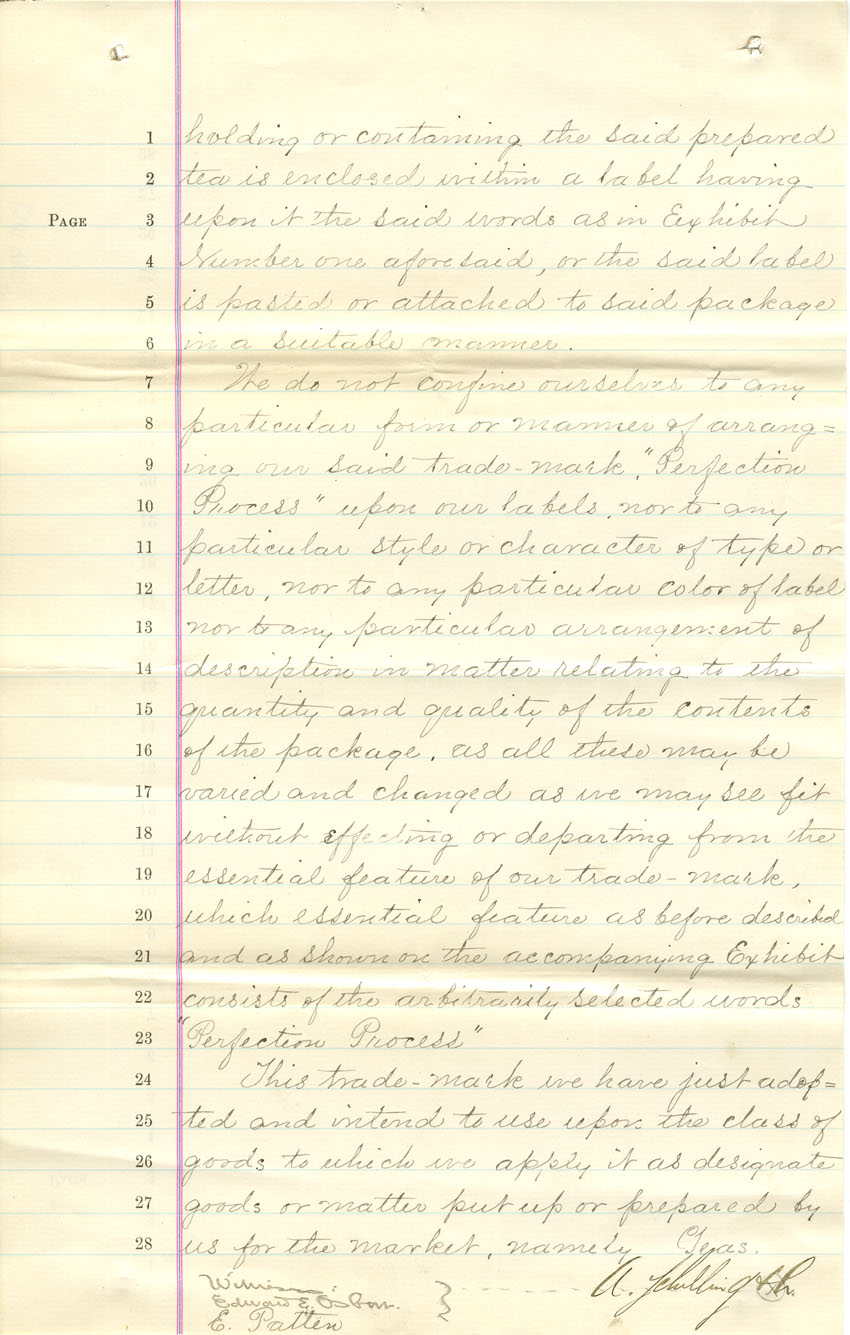 1 holding or containing the said prepared
2 tea is enclosed within a label having
PAGE 3 upon it the said words as in Exhibit
4 Number one aforesaid, or the said label
5 is pasted or attached to said package
6 in a suitable manner.
7 We do not confine ourselves to any
8 particular form or manner of arrang=
9 ing our said trade-mark, "Perfection
10 Process" upon our labels, nor to any
11 particular style or character of type or
12 letter, nor to any particular color of label
13 nor to any particular arrangement of
14 description in matter relating to the
15 quantity and quality of the contents
16 of the package, as all these may be
17 varied and changed as we may see fit
18 without effecting or departing from the
19 essential feature of our trade-mark,
20 which essential feature as before described
21 and as shown on the accompanying Exhibit
22 consists of the arbitrarily selected words
23 "Perfection Process"
24 This trade-mark we have just adop=
25 ted and intend to use upon the class of
26 goods to which we apply it as designate
27 goods or matter put up or prepared by
28 us for the market, namely Teas.
A. Schilling & Co.
Edward E. Osborn.
E. Patten